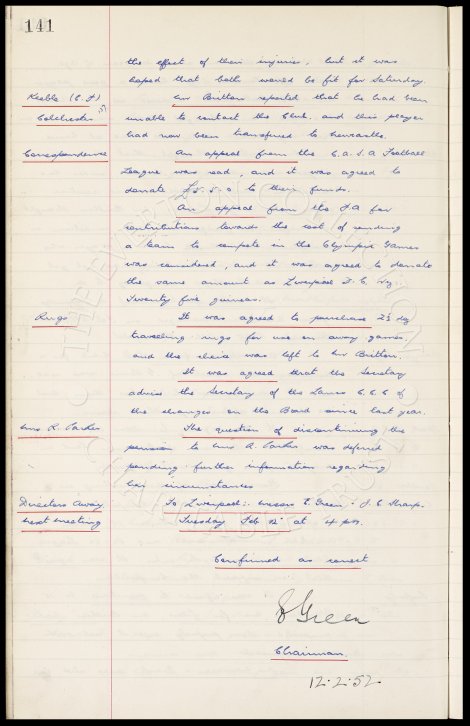 141
the effect of their injuries, but it was
hoped that both would be fit for Saturday.
Keeble (C.F)
Mr Britton reported that he had been
Colchester
unable to contact the Club, and this player
had now been transferred to Newcastle.
Correspondence
An appeal from the C.A.S.A Football
League was read, and it was agreed to
donate £5.5.0 to their funds.
An appeal from the F.A for
contributions towards the cost of sending
a team to compete in the Olympic Games
was considered, and it was agreed to donate
the same amount as Liverpool F.C. viz
Twenty five guineas.
Rugs
It was agreed to purchase
travelling rugs for use on away games
and the choice was left to Mr Britton.
It was agreed that the Secretary
advise the Secretary of the Lancs C.C.C of
the changes on the Board since last year.
Mrs R. Parker
The question of discontinuing the
pension to Mrs R. Parker was deferred
pending further information regarding
her circumstances
Directors Away
To Liverpool:- Messrs E. Green & J.C Sharp.
Next meeting
Tuesday Feb 12th at 4 pm.
Confirmed as correct
Green
Chairman.
12.2.52
THE EVERTON COLLECTION
CHARITABLE TRUST